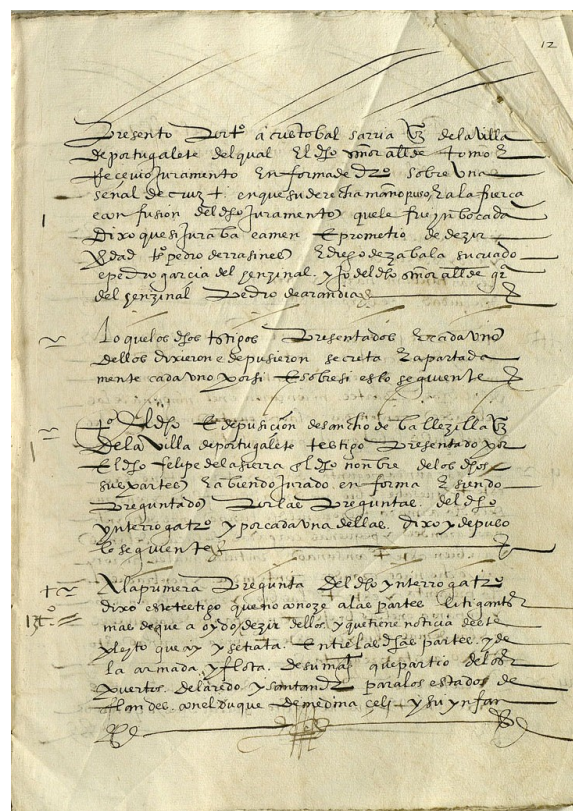 12
Presento por tº a cristobal sarria vº de la villa
de portugalete del qual El dho señor allde tomo E
Recevio juramento En forma de drº sobre Una
señal de cruz + en que su derecha mano puso, E a la fuerca
E confusion del dho Juramento que le fue ynbocada
Dixo que si juraba E amen E prometio de dezir
Verdad tºs pedro de rrasines E diego de zabala su cuñado
E pedro garcia del senzinal. y Jº del dho señor allde
del senzinal Pedro de arandia
Lo que los dhos testigos Presentados E cada Uno
dellos dixieron e depusieron secreta E apartada
mente cada Uno por si E sobre si es lo seguiente
tº El dho E deposición de sancho de ballezilla vº
De la Villa de portugalete testigo Presentado por
El dho felipe de la sierra El dho nonbre de los dhos
sus partes E abiendo jurado en forma E siendo
Preguntado Por las Preguntas del dho
ynterrogatrº y por cada Una dellas. dixo y depuso
lo seguiente
A la primera Pregunta Del dho ynterrogatrº
dixo este testigo que no conoze a las partes litigantes
mas de que a oydo dezir dellos y que tiene noticia deste
pleyto que ay y se trata. Entre las dhas partes. y de
la armada y flota. de su magt que partio de los
puertos. de laredo y santandr para los estados de
flandes. con el duque de medina celi y su ynfan